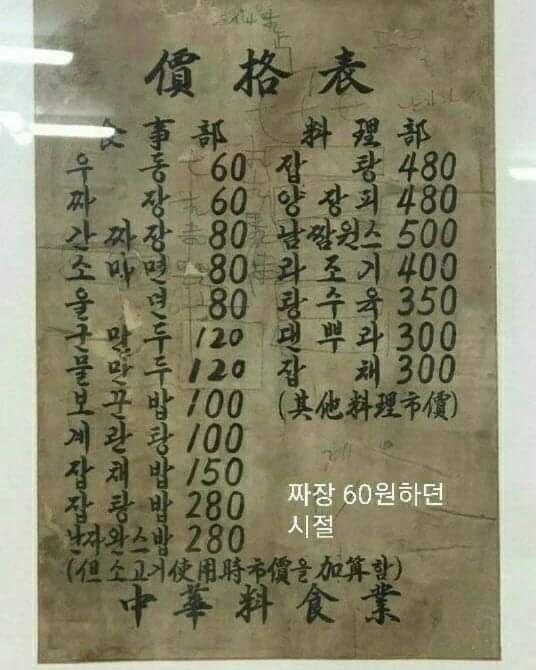 價格表
食事部
우동 60
짜장 60
간짜장 80
소마면 80
울면 80
군만두 120
물만두 120
보끈밥 100
계란탕 100
잡채밥 150
잡탕밥 280
난자완스밥 280
(但소고기使用時市價을加算함)
料理部
잡탕 480
양장피 480
남짬원스 500
라조기 400
탕수육 350
댄뿌라 300
잡채 300
(其他料理市價)
中華料食業
짜장 60원하던
시절